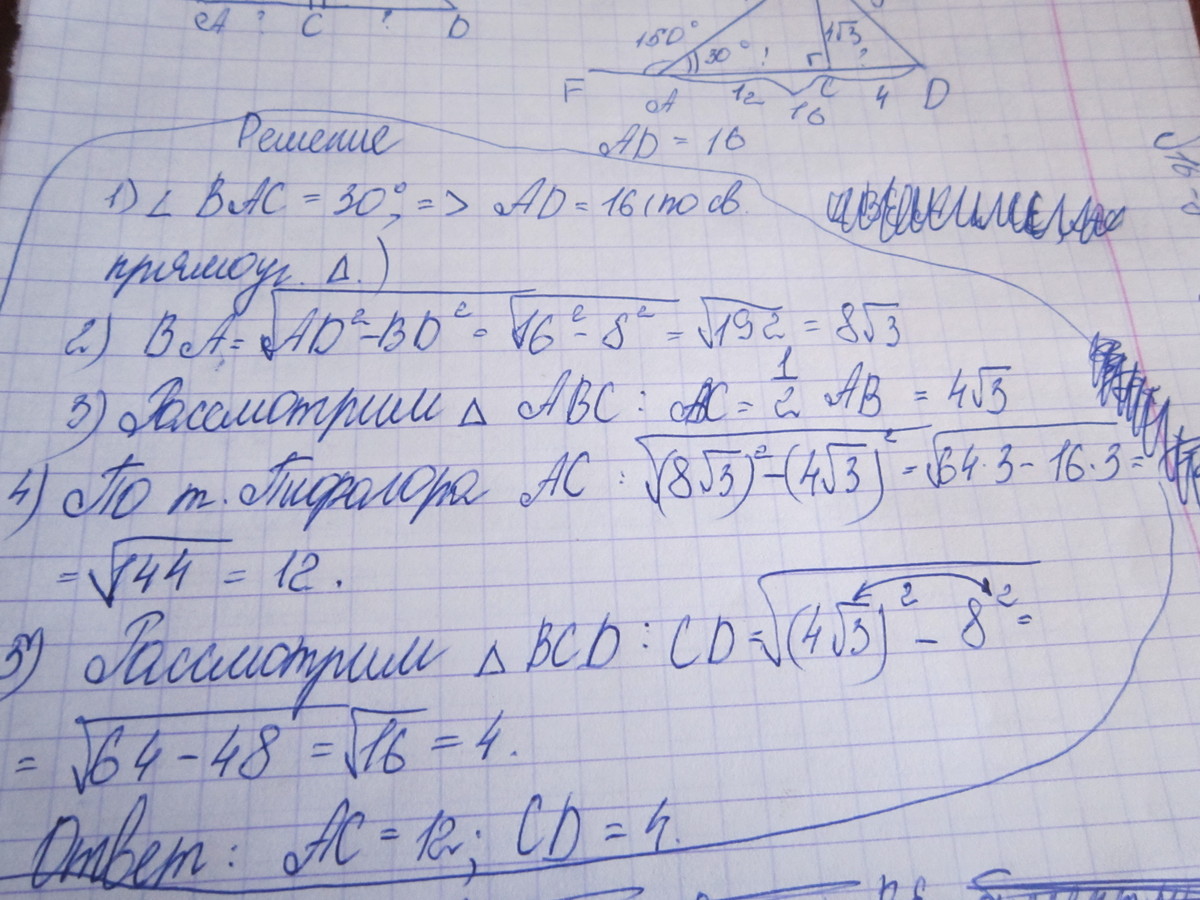 A ? C ? D
150° 30° ! 4√3 ?
F A 12 C 4 D
16
AD = 16
Решение
1) ∠ BAC = 30°, => AD = 16 (по св.
прямоуг. Δ.)
2) BA = √AD² - BD² = √16² - 8² = √192 = 8√3
3) Рассмотрим Δ ABC : AC = 1/2 AB = 4√3
4) По т. Пифагора AC : √(8√3)² - (4√3)² = √64·3 - 16·3 =
= √144 = 12.
5) Рассмотрим Δ BCD : CD = √(4√3)² - 8² =
= √64 - 48 = √16 = 4.
Ответ: AC = 12; CD = 4.